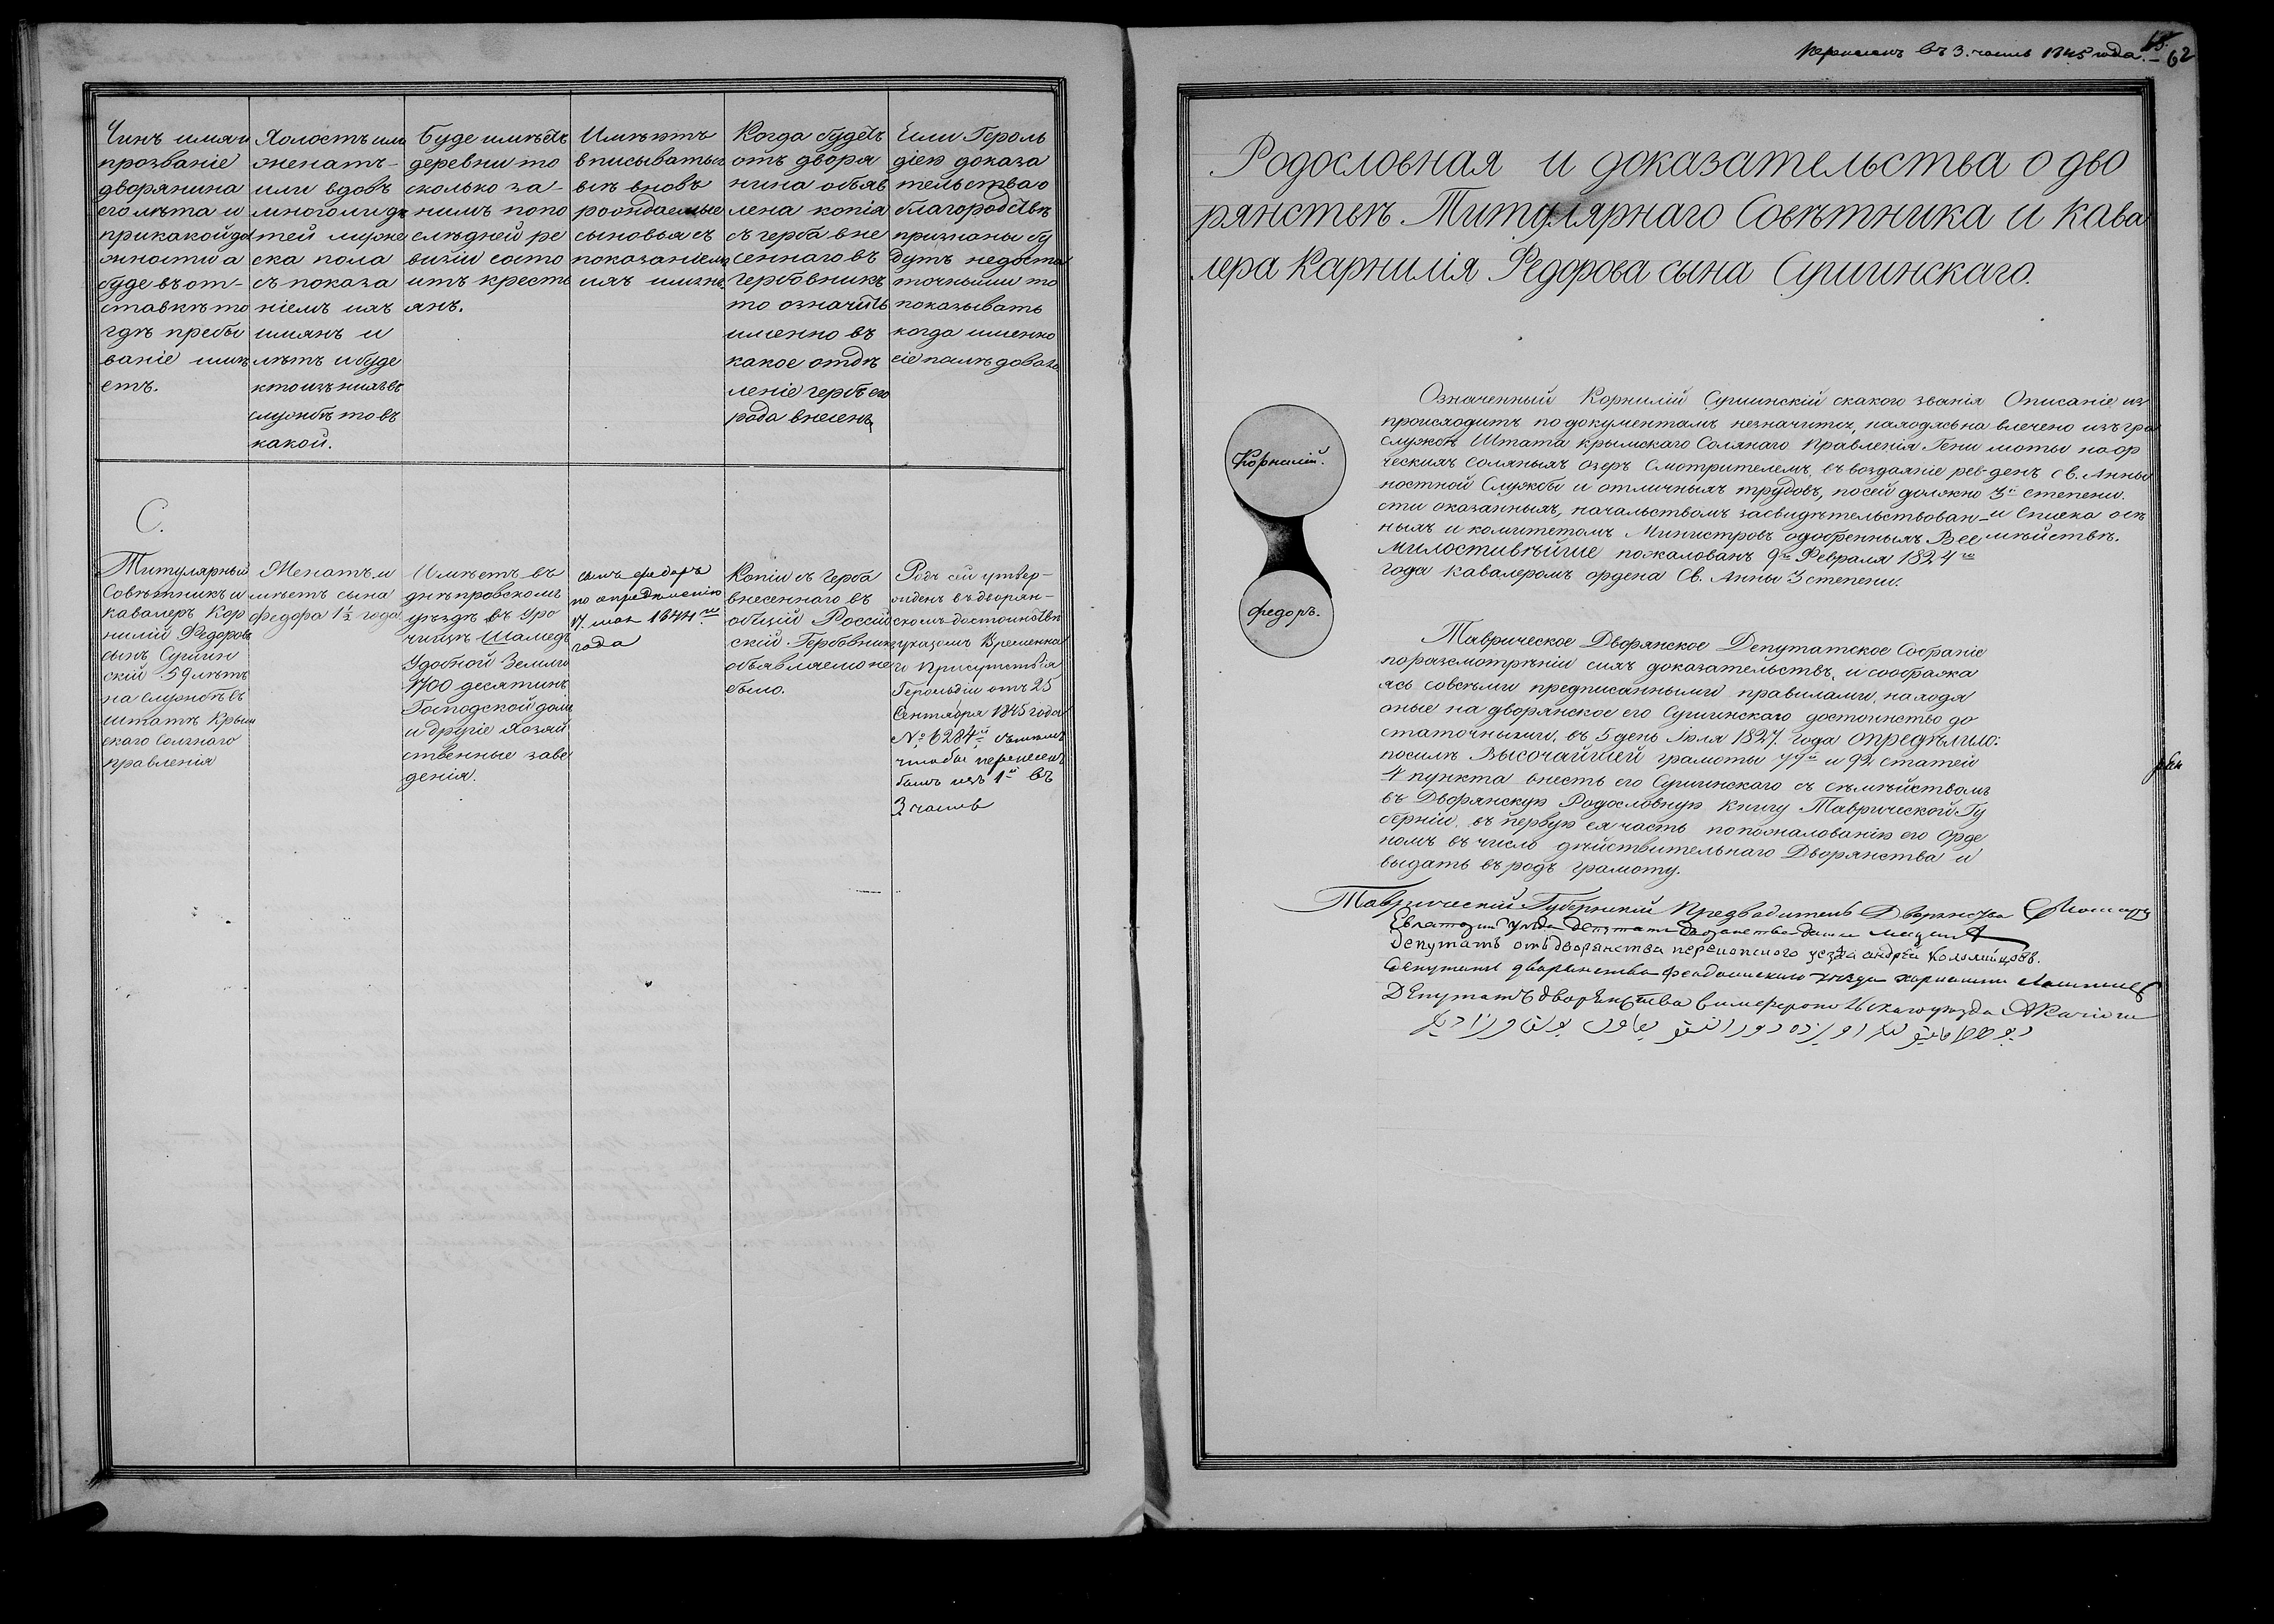 Чинъ имя и
прозваніе
дворянина
его лѣта и
при какой дол
жности а
буде въ от-
ставкѣ то
гдѣ пребы
ваніе имѣ
етъ.
Холостъ или
женатъ-
или вдовъ
много ли дѣ
тей муже
ска пола
съ показа
ніемъ ихъ
имянъ и
лѣтъ и буде
кто изъ нихъ въ
службѣ то въ
какой.
Буде имѣетъ
деревни то
сколько за-
нимъ попо
слѣдней ре
визіи состо
итъ кресть
янъ.
Имѣютъ
вписыватьс
всѣ вновь
рождаемые
сыновья съ
показаніемъ
ихъ имянъ
Когда будетъ
отъ дворя
нина объяв
лена копія
съ герба вне
сеннаго въ
гербовникъ
то означить
именно въ
какое отдѣ
леніе гербъ его
рода внесенъ
Если Героль
діею доказа
тельства о
благородствѣ
признаны бу
дутъ недоста
точными то
показывать
когда именно
сіе послѣдовало
С.
Титулярный
Совѣтникъ и
кавалеръ Кор
нилій Федоровъ
сынъ Сушин
скій 59 лѣтъ
на службѣ въ
штатѣ Крым
скаго Солянаго
правленія
Женатъ и
мѣетъ сына
Федора 1½ года
Имѣетъ въ
днѣпровскомъ
уѣздѣ въ Уро
чищѣ Шамедъ
Удобной Земли
1700 десятинъ
Господской домъ
и другіе хозяй
ственные заве
денія.
сынъ федоръ
по опредѣленію
17. мая 1844го
года
Копіи съ Герба
внесеннаго въ
общій Россій
скій Гербовникъ
объявляемо не
было.
Родъ сей утвер-
жденъ въ дворян-
скомъ достоинствѣ
указомъ Временна
го Присутствія
Герольдіи отъ 25
Сентября 1845 года
№ 6284й съ тѣмъ
чтобы перенесенъ
былъ изъ 1й въ
3 часть
въ 3. часть 1845 года.
62
Родословная и доказательства о дво
рянствѣ Титулярнаго Совѣтника и Кава
лера Карнилія Федорова сына Сушинскаго.
Корнилій.
федоръ.
Означенный Корнилій Сушинскій скакого званія
происходитъ по документамъ незначится, находясь на
службѣ Штата Крымскаго Солянаго Правленія Гени
ческихъ соляныхъ озеръ Смотрителемъ, въ воздаяніе рев-
ностной Службы и отличныхъ трудовъ, посей должно
сти оказанныхъ, начальствомъ засвидѣтельствован-
ныхъ и комитетомъ Министровъ одобренныхъ Все
милостивѣйше пожалованъ 9го Февраля 1824го
года кавалеромъ ордена Св. Анны 3 степени.
Описаніе из
влечено изъ гра
моты на ор
денъ Св. Анны
3й степени.
и Списка о сѣ
мѣйствѣ.
Таврическое Дворянское Депутатское Собраніе
по разсмотрѣніи сихъ доказательствъ, и сообража
ясь совсѣми предписанными правилами, находя
оные на дворянское его Сушинскаго достоинство до
статочными, въ 5 день Іюля 1827. года опредѣлило:
по силѣ Высочайшей грамоты 77й и 92 статей
4 пункта внесть его Сушинскаго съ сѣмѣйствомъ
въ Дворянскую Родословную Книгу Таврической Гу
берніи, въ первую ея часть по пожалованію его Орде
номъ въ число дѣйствительнаго Дворянства и
выдать въ родъ грамоту.
Таврическій Губернскій Предводитель Дворянства
Депутатъ отъ дворянства перекопского уезда андрей Коломийцовъ.
Депутатъ дворянства феодосийского уезда
Депутатъ дворянства симферопольскаго уезда